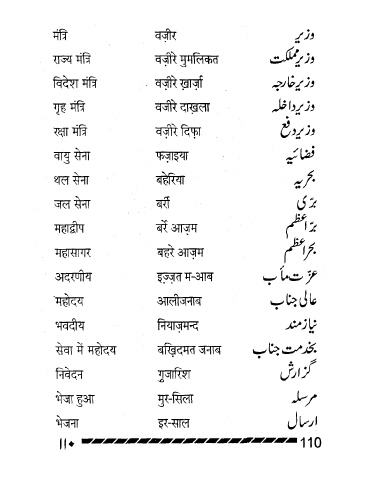 मंत्रि वज़ीर وزیر
राज्य मंत्रि वज़ीरे मुमलिकत وزیرمملکت
विदेश मंत्रि वज़ीरे ख़ार्ज़ा وزیرخارجہ
गृह मंत्रि वजीरे दाख़ला وزیرداخلہ
रक्षा मंत्रि वज़ीरे दिफ़ा وزیردفع
वायु सेना फज़ाइया فضائیہ
थल सेना बहेरिया بحریہ
जल सेना बर्री برّی
महाद्वीप बर्रे आज़म برّاعظم
महासागर बहरे आज़म بحراعظم
अदरणीय इज़्ज़त म-आब عزت مآب
महोदय आलीजनाब عالی جناب
भवदीय नियाज़मन्द نیازمند
सेवा में महोदय बख़िदमत जनाब بخدمت جناب
निवेदन गुज़ारिश گزارش
भेजा हुआ मुर-सिला مرسلہ
भेजना इर-साल ارسال
۱۱۰ 110